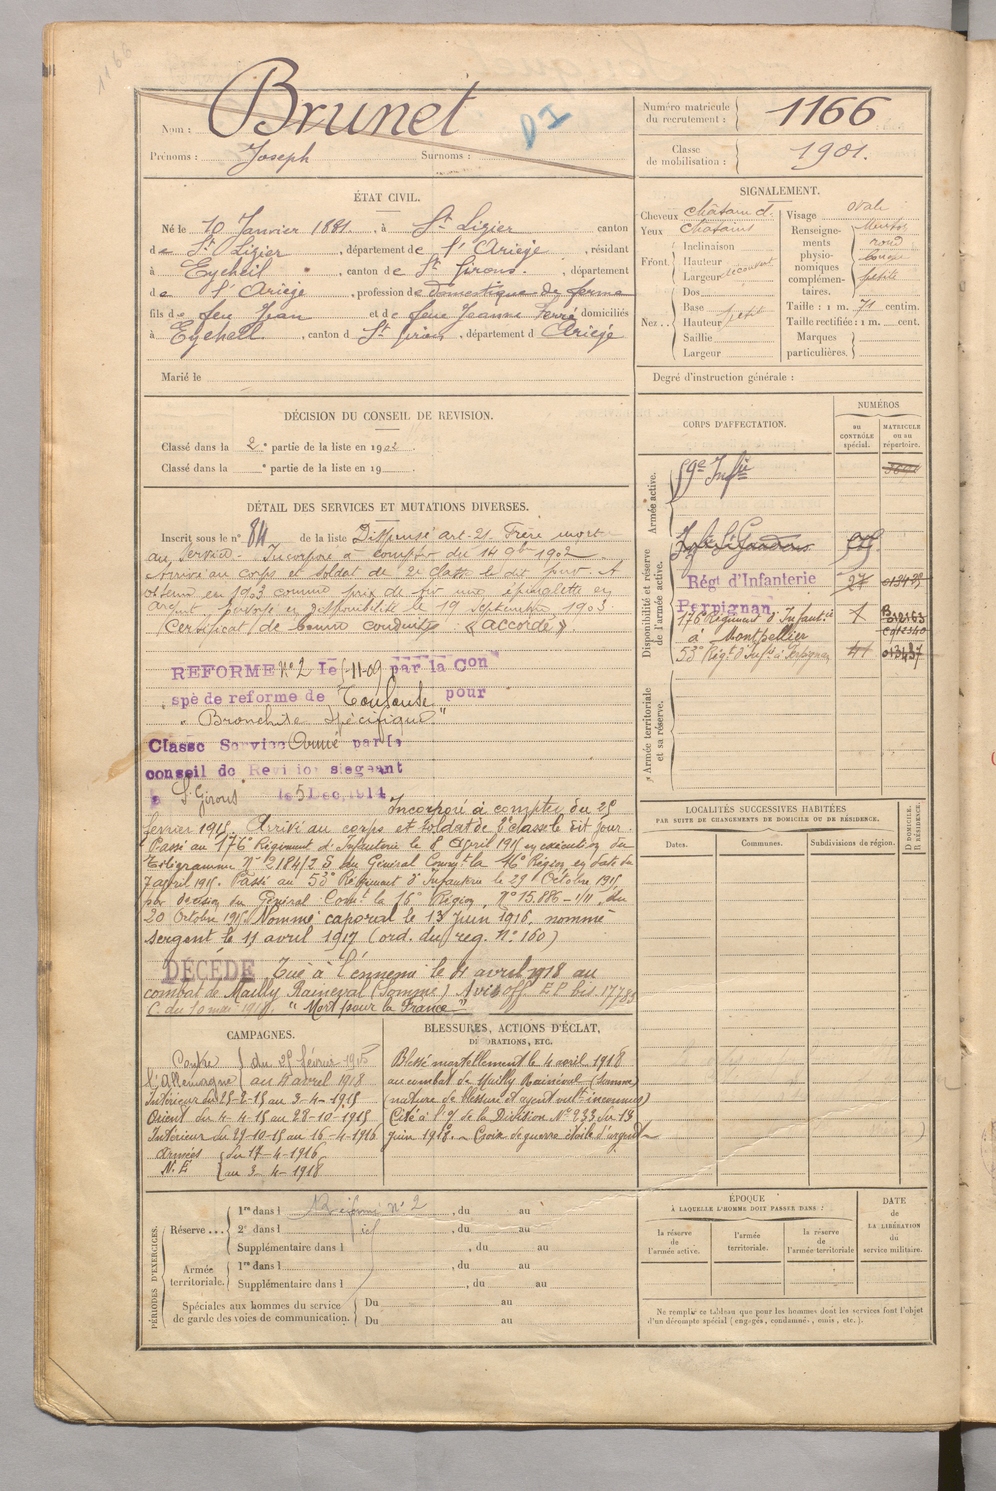 1166
Nom : Brunet
D I
Prénoms : Joseph Surnoms :
Numéro matricule du recrutement : 1166
Classe de mobilisation : 1901.
ÉTAT CIVIL.
Né le 10 Janvier 1881, à St Lizier canton
de St Lizier, département de l'Ariège, résidant
à Eycheil, canton de St Girons, département
de l'Ariège, profession de domestique de ferme
fils de feu Jean et de feue Jeanne Ferré, domiciliés
à Eycheil, canton d St Girons, département d Ariège
Marié le
SIGNALEMENT.
Cheveux châtain d.
Yeux châtains
Front. Inclinaison
Hauteur
Largeur découvert
Nez.. Dos
Base
Hauteur petit
Saillie
Largeur
Visage ovale
Renseignements physionomiques complémentaires. Menton rond bouche petite
Taille : 1 m. 71 centim.
Taille rectifiée : 1 m. cent.
Marques particulières.
Degré d'instruction générale :
DÉCISION DU CONSEIL DE REVISION.
Classé dans la 2e partie de la liste en 1902
Classé dans la e partie de la liste en 19
DÉTAIL DES SERVICES ET MUTATIONS DIVERSES.
Inscrit sous le n° 84 de la liste Dispensé art. 21. Frère mort
au service. Incorporé à compter du 14 9bre 1902.
Arrivé au corps et soldat de 2e classe le dit jour. A
obtenu en 1903 comme prix de tir une épinglette en
argent, passé en disponibilité le 19 septembre 1903.
Certificat de bonne conduite « accordé »
REFORME N°2 le -11-09 par la Con
spé de reforme de Toulouse pour
" Bronchite spécifique "
Classé Service Armé par le
conseil de Revision siegeant
à St Girons le 5 Dec. 1914
Incorporé à compter du 25
février 1915. Arrivé au corps et soldat de 2e classe le dit jour.
Passé au 176e Régiment d'Infanterie le 8 Avril 1915 en exécution du
Télégramme N° 184/2 S du Général Commt la 16e Région en date du
7 avril 1915. Passé au 53e Régiment d'Infanterie le 29 Octobre 1915,
par décision du Général Comt la 16e Région, N° 15.886-1/11 du
20 Octobre 1915. Nommé caporal le 13 Juin 1916, nommé
sergent le 11 avril 1917 (ord. du reg. N° 160)
DÉCÉDÉ Tué à l'ennemi le 4 avril 1918 au
combat de Mailly Raineval (Somme) Avis off. EP bis 17785
C. du 10 mai 1918. "Mort pour la France"
CORPS D'AFFECTATION.
NUMÉROS
au CONTRÔLE spécial.
MATRICULE ou au répertoire.
Armée active.
59e Infie
Disponibilité et réserve de l'armée active.
Régt d'Infanterie
Perpignan 27
176e Régiment d'Infanterie
à Montpellier
53e Régt d'Infie à Perpignan
Armée territoriale et sa réserve.
LOCALITÉS SUCCESSIVES HABITÉES
PAR SUITE DE CHANGEMENTS DE DOMICILE OU DE RÉSIDENCE.
Dates.
Communes.
Subdivisions de région.
D DOMICILE.
R RÉSIDENCE.
CAMPAGNES.
Contre l'Allemagne du 25 février 1915
au 4 avril 1918
Intérieur du 25-2-15 au 3-4-1915
Orient du 4-4-15 au 28-10-1915
Intérieur du 29-10-15 au 16-4-1916
Armées N. E du 17-4-1916
au 3-4-1918
BLESSURES, ACTIONS D'ÉCLAT,
DÉCORATIONS, ETC.
Blessé mortellement le 4 avril 1918
au combat de Mailly Raineval (Somme)
(nature de blessure et agent vulnt inconnus)
Cité à l'O/ de la Division N° 233 du 13
juin 1918. Croix de guerre étoile d'argent
PÉRIODES D'EXERCICES.
Réserve ... 1re dans l Réformé n° 2, du au
2e dans l id, du au
Supplémentaire dans l, du au
Armée territoriale. 1re dans l, du au
Supplémentaire dans l, du au
Spéciales aux hommes du service de garde des voies de communication. Du au
Du au
ÉPOQUE
À LAQUELLE L'HOMME DOIT PASSER DANS :
la réserve de l'armée active.
l'armée territoriale.
la réserve de l'armée territoriale
DATE de LA LIBÉRATION du service militaire.
Ne remplir ce tableau que pour les hommes dont les services font l'objet
d'un décompte spécial (engagés, condamnés, omis, etc.).